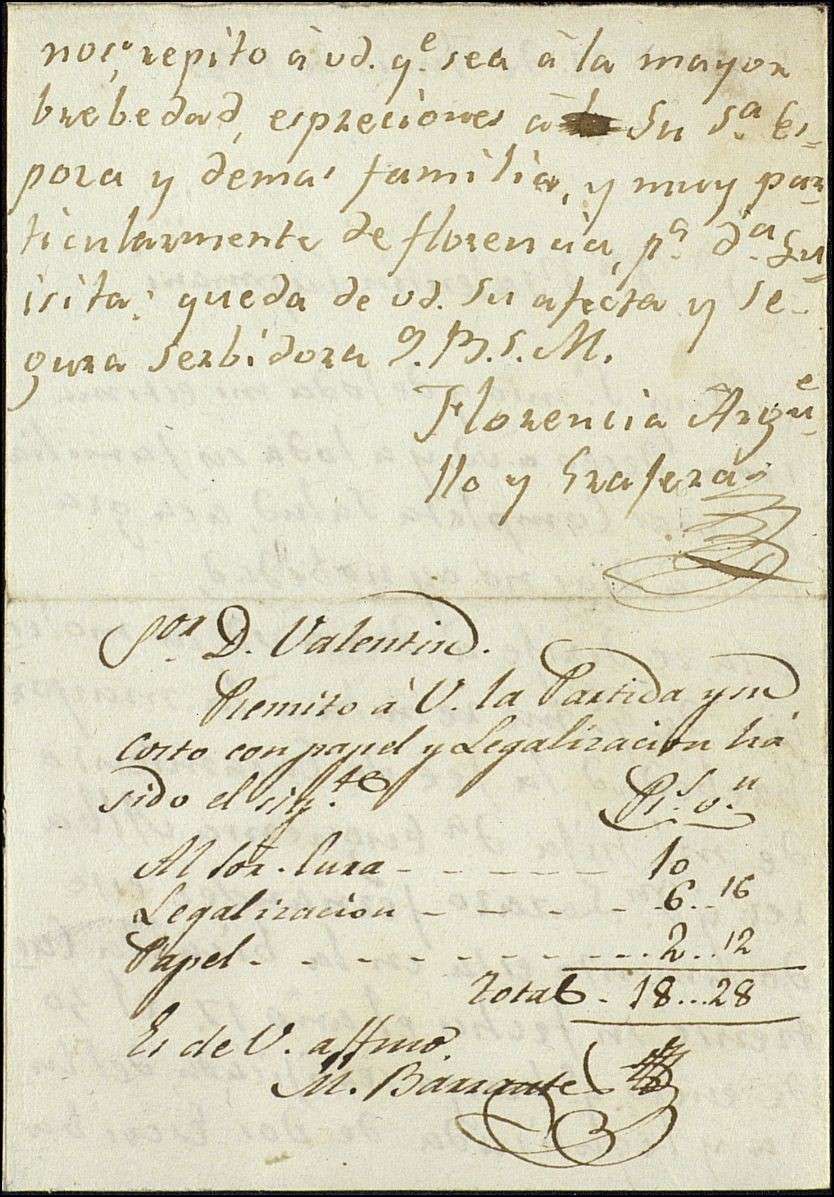 nos, repito á vd. qe. sea á la mayor
brebedad, espreciones á Su Sa. Es-
posa y demas familia, y muy par-
ticularmente de florencia, pa. da. Lu-
isita; queda de vd. su afecta y se-
gura serbidora Q.B.S.M.
Florencia Argüe-
llo y
Sor. D. Valentin.
Remito á V. la Partida y su
costo con papel y Legalizacion há
sido el sigte.
Rs. vn.
Al Sor. Cura - - - - - - 10
Legalizacion - - - - - 6..16
Papel - - - - - - - - - 2..12
Total - 18...28
Es de V. affmo.
M. Barrante